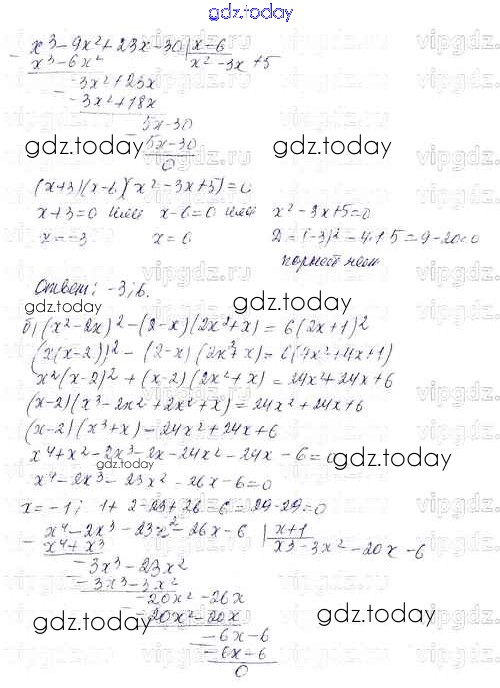 gdz.today
x³-9x²+23x-30 | x-6
x³-6x² x²-3x+5
-3x²+23x
-3x²+18x
5x-30
5x-30
0
gdz.today gdz.today
(x+3)(x-6)(x²-3x+5)=0
x+3=0 или x-6=0 или x²-3x+5=0
x=-3 x=0 D=(-3)²-4·1·5=9-20<0
корней нет
Ответ: -3; 6.
gdz.today gdz.today
б) (x²-2x)²-(2-x)(2x²+x)=6(2x+1)²
(x(x-2))²-(2-x)(2x²+x)=6(4x²+4x+1)
x²(x-2)²+(x-2)(2x²+x)=24x²+24x+6
(x-2)(x³-2x²+2x²+x)=24x²+24x+6
(x-2)(x³+x)-24x²+24x+6
x⁴+x²-2x³-2x-24x²-24x-6=0
gdz.today gdz.today
x⁴-2x³-23x²-26x-6=0
x=-1; 1+2-23+26-6=29-29=0
x⁴-2x³-23x²-26x-6 | x+1
x⁴+x³ x³-3x²-20x-6
-3x³-23x²
-3x³-3x²
-20x²-26x
-20x²-20x
gdz.today gdz.today
-6x-6
-6x-6
0